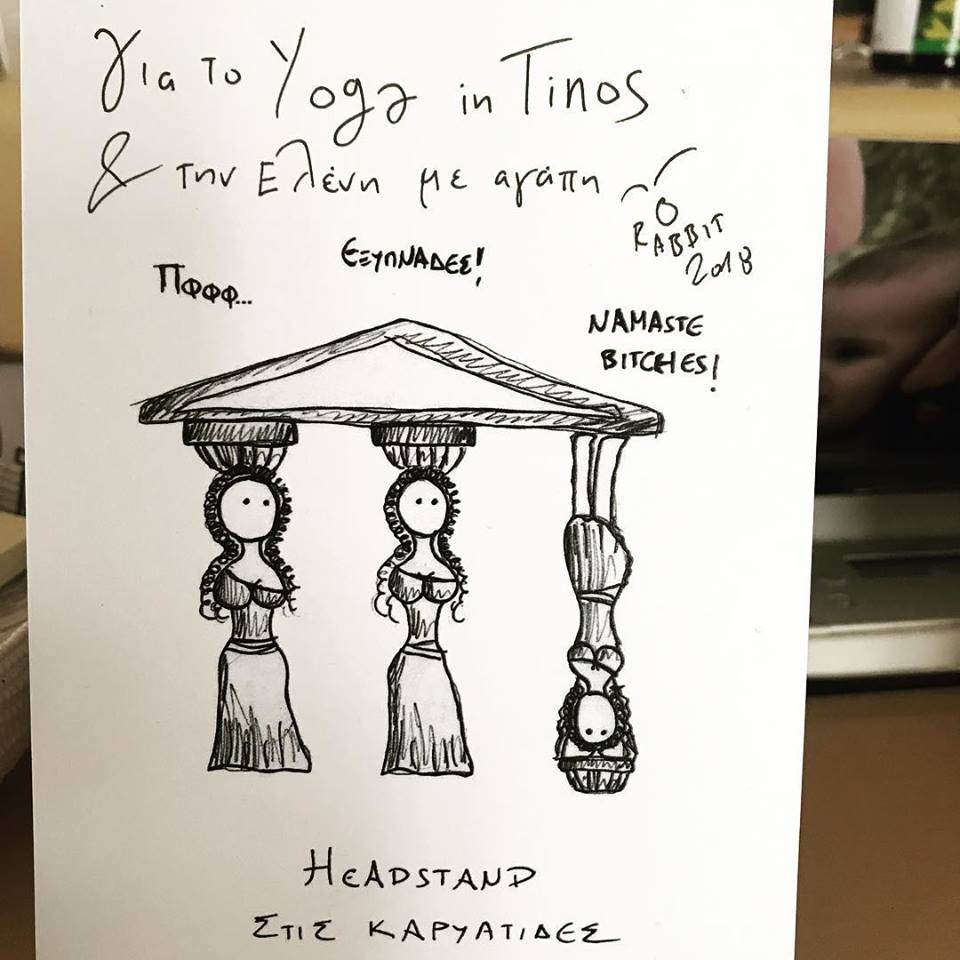 Για το Yoga in Tinos
& την Ελένη με αγάπη
RABBIT
2018
Πφφφ...
ΕΞΥΠΝΑΔΕΣ!
NAMASTE
BITCHES!
HEADSTAND
ΣΤΙΣ ΚΑΡΥΑΤΙΔΕΣ